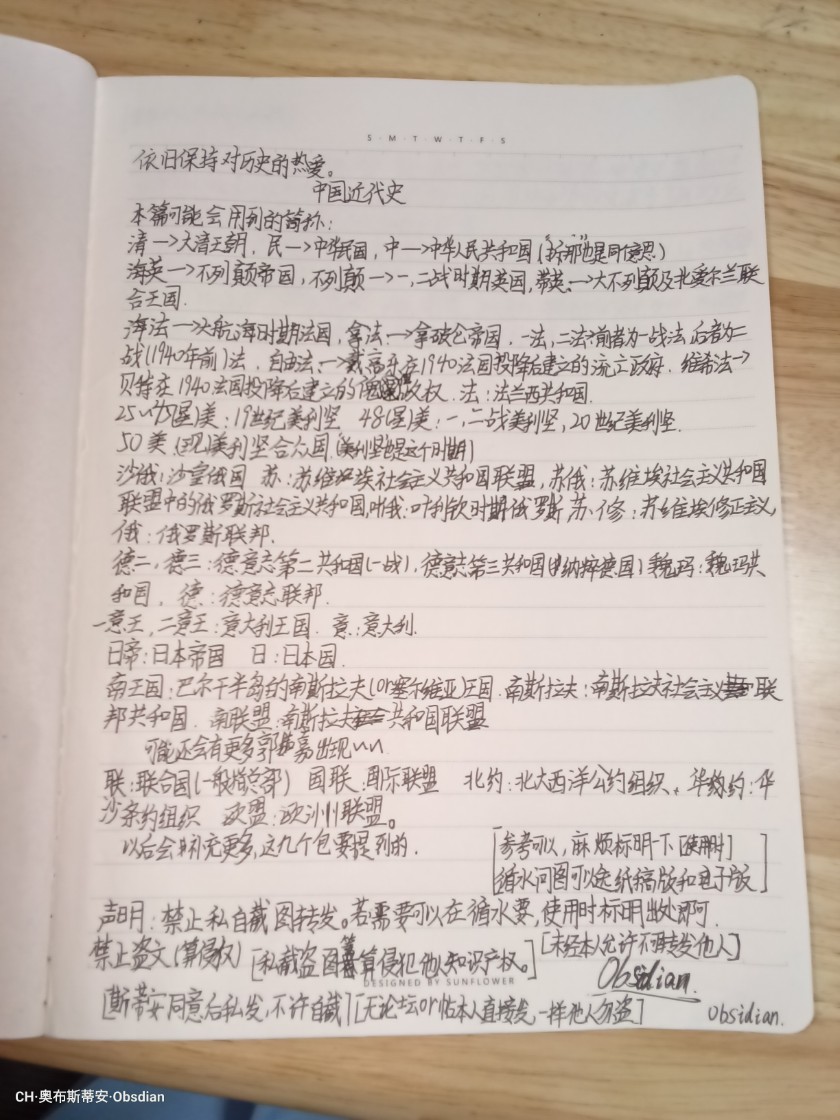 S·M·T·W·T·F·S
依旧保持对历史的热爱。
中国近代史
本篇可能会用到的简称：
清→大清王朝，民→中华民国，中→中华人民共和国（"拆那"也是同意思）
海英→不列颠帝国，不列颠→一，二战时期英国，带英→大不列颠及北爱尔兰联
合王国.
海法→大航海时期法国，拿法→拿破仑帝国.一法，二法：前者为一战法，后者为二
战（1940年前）法，自由法→戴高乐在1940法国投降后建立的流亡政府.维希法→
贝当在1940法国投降后建立的傀儡政权.法：法兰西共和国.
25~45(星)美：19世纪美利坚 48(星)美：一，二战美利坚，20世纪美利坚.
50美（现）美利坚合众国.（美利坚也是这个时期）
沙俄：沙皇俄国 苏：苏维埃社会主义共和国联盟，苏俄：苏维埃社会主义共和国
联盟中的俄罗斯社会主义共和国，叶俄：叶利钦时期俄罗斯 苏修：苏维埃修正主义，
俄：俄罗斯联邦.
德二，德三：德意志第二共和国（一战），德意志第三共和国（纳粹德国）魏玛：魏玛共
和国，德：德意志联邦.
一意王，二意王：意大利王国.意：意大利.
日帝：日本帝国 日：日本国.
南王国：巴尔干半岛的南斯拉夫（or塞尔维亚）王国.南斯拉夫：南斯拉夫社会主义联
邦共和国.南联盟：南斯拉夫共和国联盟
可能还会有更多郭嘉出现~~
联：联合国（一般指总部） 国联：国际联盟 北约：北大西洋公约组织，华约：华
沙条约组织 欧盟：欧洲联盟。
以后会补充更多，这几个包要提到的.
[参考可以，麻烦标明一下[使用时]
循水问图可以送纸稿版和电子版]
声明：禁止私自截图转发。若需要可以在循水要，使用时标明出处即可.
禁止盗文（算侵权）[私截盗图算侵犯他人知识产权。]
[未经本人允许不可转发他人]
Obsidian.
DESIGNED BY SUNFLOWER
[斯蒂安同意后私发，不许自截][无论坛or帖本人直接发，一样他人勿盗]
Obsidian.
CH·奥布斯蒂安·Obsdian